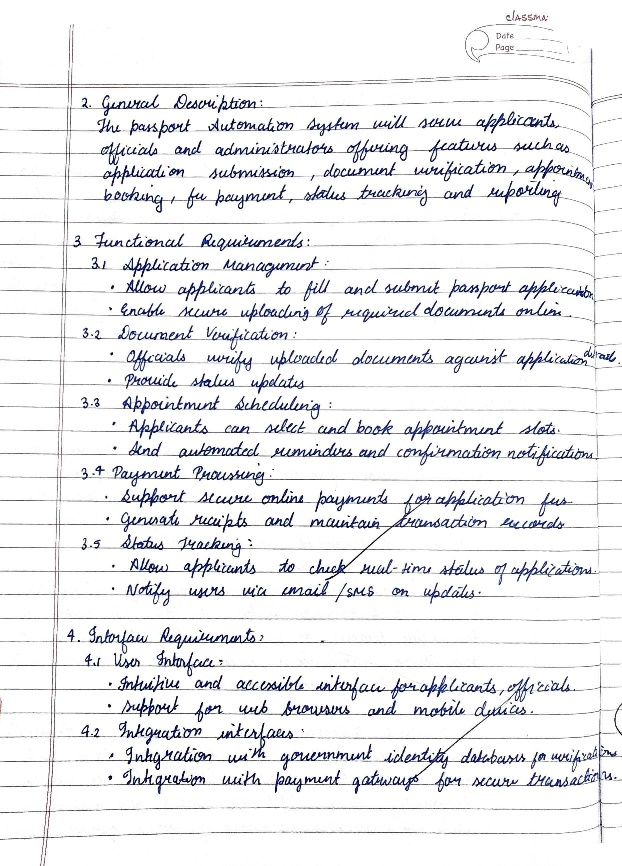 classma
Date
Page
2. General Description:
The passport Automation System will serve applicants
officials and administrators offering features such as
application submission, document verification, appointmen
booking, fee payment, status tracking and reporting
3 Functional Requirements:
3.1 Application Management:
· Allow applicants to fill and submit passport application
· Enable secure uploading of required documents online.
3.2 Document Verification:
· Officials verify uploaded documents against application details.
· Provide status updates
3.3 Appointment Scheduling:
· Applicants can select and book appointment slots.
· Send automated reminders and confirmation notifications
3.4 Payment Processing:
· Support secure online payments for application fees
· Generate receipts and maintain transaction records
3.5 Status Tracking:
· Allow applicants to check real-time status of applications.
· Notify users via email/SMS on updates.
4. Interface Requirements:
4.1 User Interface:
· Intuitive and accessible interface for applicants, officials.
· Support for web browsers and mobile devices.
4.2 Integration interfaces:
· Integration with government identity databases for verifications
· Integration with payment gateways for secure transactions.